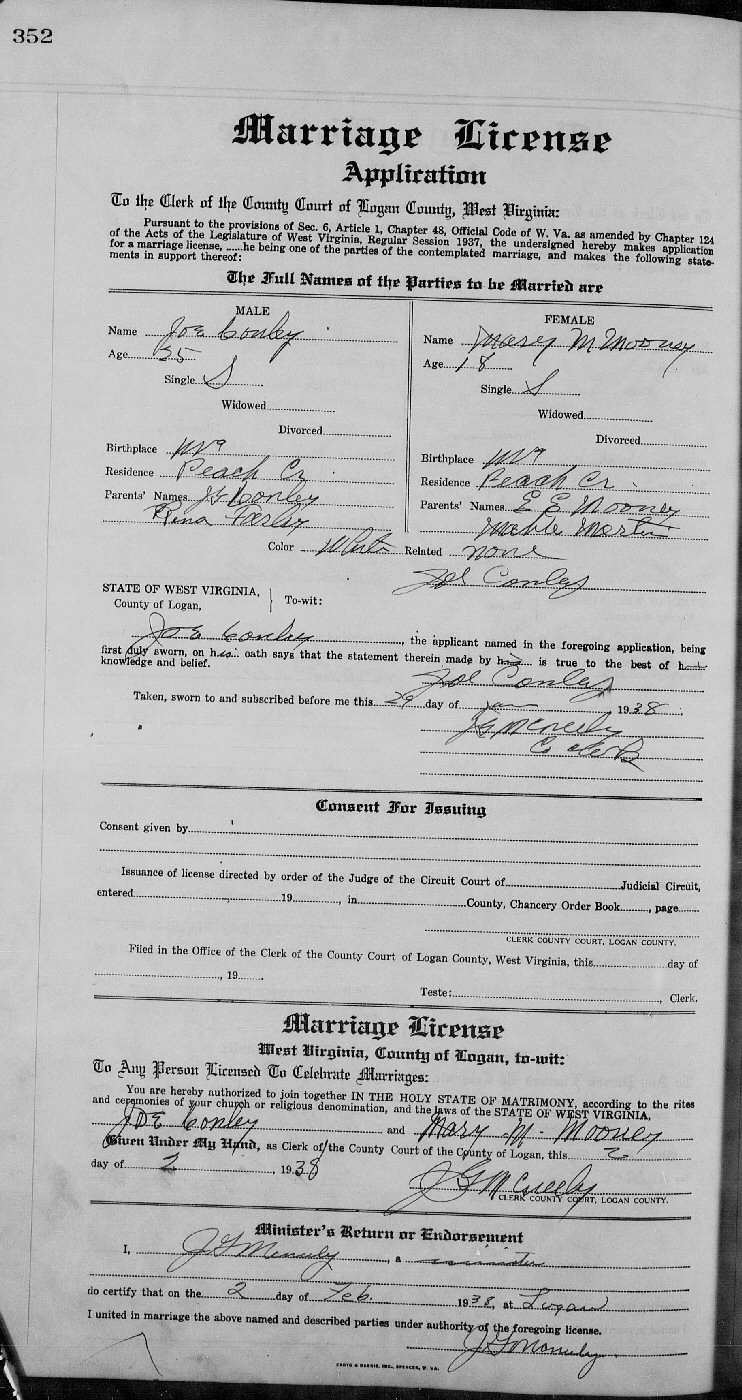 352
Marriage License
Application
To the Clerk of the County Court of Logan County, West Virginia:
Pursuant to the provisions of Sec. 6, Article 1, Chapter 48, Official Code of W. Va. as amended by Chapter 124
of the Acts of the Legislature of West Virginia, Regular Session 1937, the undersigned hereby makes application
for a marriage license, ......he being one of the parties of the contemplated marriage, and makes the following state-
ments in support thereof:
The Full Names of the Parties to be Married are
MALE
Name Joe Conley
Age 35
Single S
Widowed
Divorced
Birthplace WVa
Residence Peach Cr
Parents' Names J G Conley
Rina Farley
FEMALE
Name Mary M Mooney
Age 18
Single S
Widowed
Divorced
Birthplace WVa
Residence Peach Cr.
Parents' Names E E Mooney
Martin
Color White Related none
Joe Conley
STATE OF WEST VIRGINIA,
County of Logan,
To-wit:
Joe Conley, the applicant named in the foregoing application, being
first duly sworn, on his oath says that the statement therein made by him is true to the best of his
knowledge and belief.
Joe Conley
Taken, sworn to and subscribed before me this 29 day of Jan 1938
J G McNeely
Co Clerk
Consent For Issuing
Consent given by
Issuance of license directed by order of the Judge of the Circuit Court of Judicial Circuit,
entered 19, in County, Chancery Order Book, page
CLERK COUNTY COURT, LOGAN COUNTY.
Filed in the Office of the Clerk of the County Court of Logan County, West Virginia, this day of
, 19
Teste: , Clerk.
Marriage License
West Virginia, County of Logan, to-wit:
To Any Person Licensed To Celebrate Marriages:
You are hereby authorized to join together IN THE HOLY STATE OF MATRIMONY, according to the rites
and ceremonies of your church or religious denomination, and the laws of the STATE OF WEST VIRGINIA,
Joe Conley and Mary M. Mooney
Given Under My Hand, as Clerk of the County Court of the County of Logan, this 2
day of 2, 1938
J G McNeely
CLERK COUNTY COURT, LOGAN COUNTY.
Minister's Return or Endorsement
I, J G McNeely, a minister
do certify that on the 2 day of Feb. 1938, at Logan
I united in marriage the above named and described parties under authority of the foregoing license.
J G McNeely
CASTO & HARRIS, INC., SPENCER, W. VA.